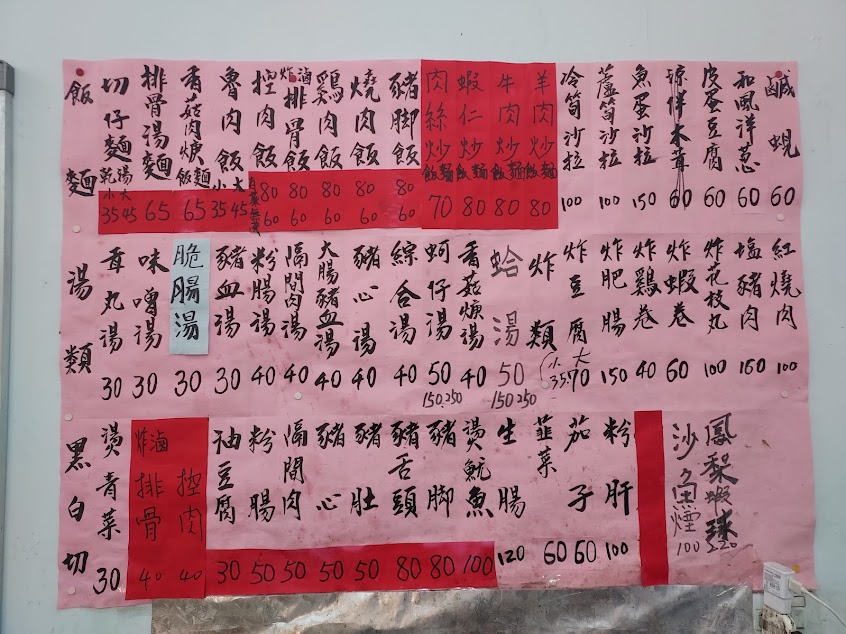 飯麵
切仔麵 乾湯 小大 35 45
排骨湯麵 65
香菇肉焿 飯麵 65
魯肉飯 小大 35 45
控肉飯 80 60
炸滷排骨飯 80 60
鶏肉飯 80 60
燒肉飯 80 60
豬脚飯 80 60
肉絲炒飯麵 70
蝦仁炒飯麵 80
牛肉炒飯麵 80
羊肉炒飯麵 80
冷筍沙拉 100
蘆筍沙拉 100
魚蛋沙拉 150
涼伴木茸 60
皮蛋豆腐 60
和風洋葱 60
鹹蜆 60
湯類
茸丸湯 30
味噌湯 30
脆腸湯 30
豬血湯 30
粉腸湯 40
隔間肉湯 40
大腸豬血湯 40
豬心湯 40
綜合湯 40
蚵仔湯 50 150.250
香菇焿湯 40
蛤湯 50 150 250
炸類
炸豆腐 小大 35.70
炸肥腸 150
炸鶏卷 40
炸蝦卷 60
炸花枝丸 100
塩豬肉 160
紅燒肉 100
黑白切
燙青菜 30
炸滷排骨 40
控肉 40
油豆腐 30
粉腸 50
隔間肉 50
豬心 50
豬肚 50
豬舌頭 80
豬脚 80
燙魷魚 100
生腸 120
韮菜 60
茄子 60
粉肝 100
沙魚煙 100
鳳梨蝦球 220